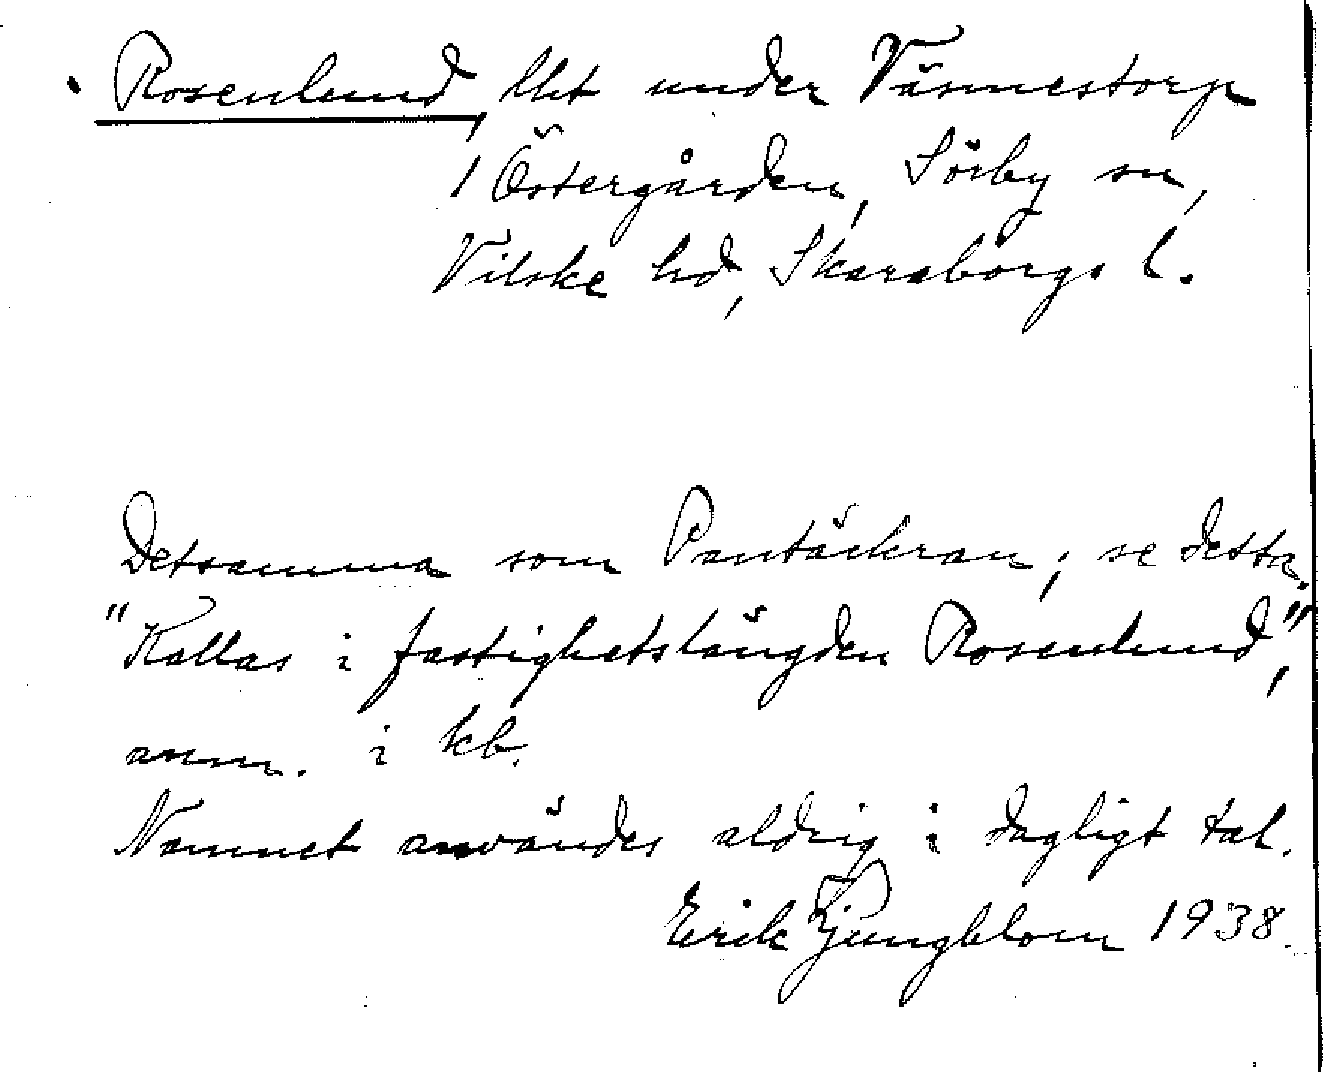 Rosenlund, lht under Vännestorp
1 Östergården, Sörby sn,
Vilske hd, Skaraborgs l.
Detsamma som Pantäckran; se detta.
"Kallas i fastighetslängden Rosenlund",
anm. i kb.
Namnet användes aldrig i dagligt tal.
Erik Ljungblom 1938.